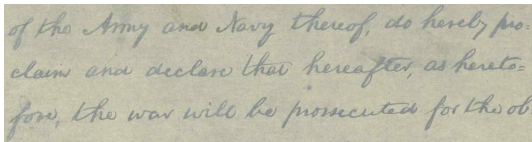 of the Army and Navy thereof, do hereby pro-
claim and declare that hereafter, as hereto-
fore, the war will be prosecuted for the ob